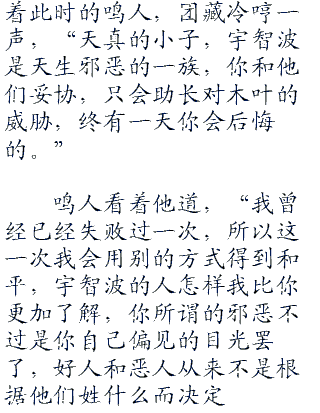 着此时的鸣人，团藏冷哼一
声，“天真的小子，宇智波
是天生邪恶的一族，你和他
们妥协，只会助长对木叶的
威胁，终有一天你会后悔
的。”
鸣人看着他道，“我曾
经已经失败过一次，所以这
一次我会用别的方式得到和
平，宇智波的人怎样我比你
更加了解，你所谓的邪恶不
过是你自己偏见的目光罢
了，好人和恶人从来不是根
据他们姓什么而决定